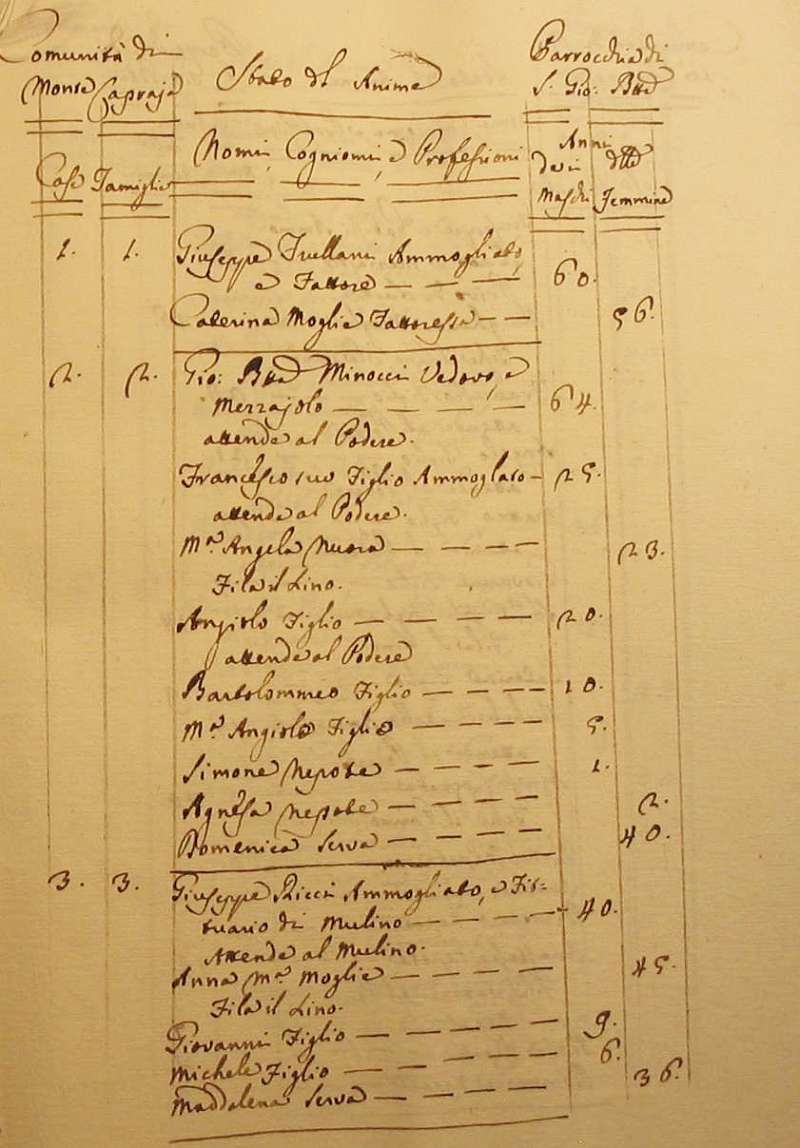 Comunità di
Monte Capraja
Stato dl Anime
Parrocchia di
S. Gio: Btta
Case Famiglie
Nomi, Cogniomi, e Professioni
Anni
de i dtte
Maschi Femmine
1. 1. Giuseppe Trellani Ammogliato,
e Fattore — — — 60.
Caterina Moglie Fattoressa — — 56.
2. 2. Gio: Btta Minocci Vedovo, e
Mezzajolo — — — — 64.
attende al Podere.
Francesco suo Figlio Ammogliato — 25.
attende al Podere.
Ma. Angela Nuora — — — — 23.
Fila il Lino.
Angiolo Figlio — — — — — 20.
attende al Podere
Bartolommeo Figlio — — — — 10.
Ma. Angiolo Figlio — — — — 5.
Simone Nepote — — — — 1.
Agnesa Nepote — — — — 2.
Domenica Serva — — — — 40.
3. 3. Giuseppe Ricci Ammogliato, e Fit=
tuario di Mulino — — — — 40.
Attende al Mulino.
Anna Ma. Moglie — — — — 45.
Fila il Lino.
Giovanni Figlio — — — — — 9.
Michele Figlio — — — — — 6.
Maddalena Serva — — — — 36.